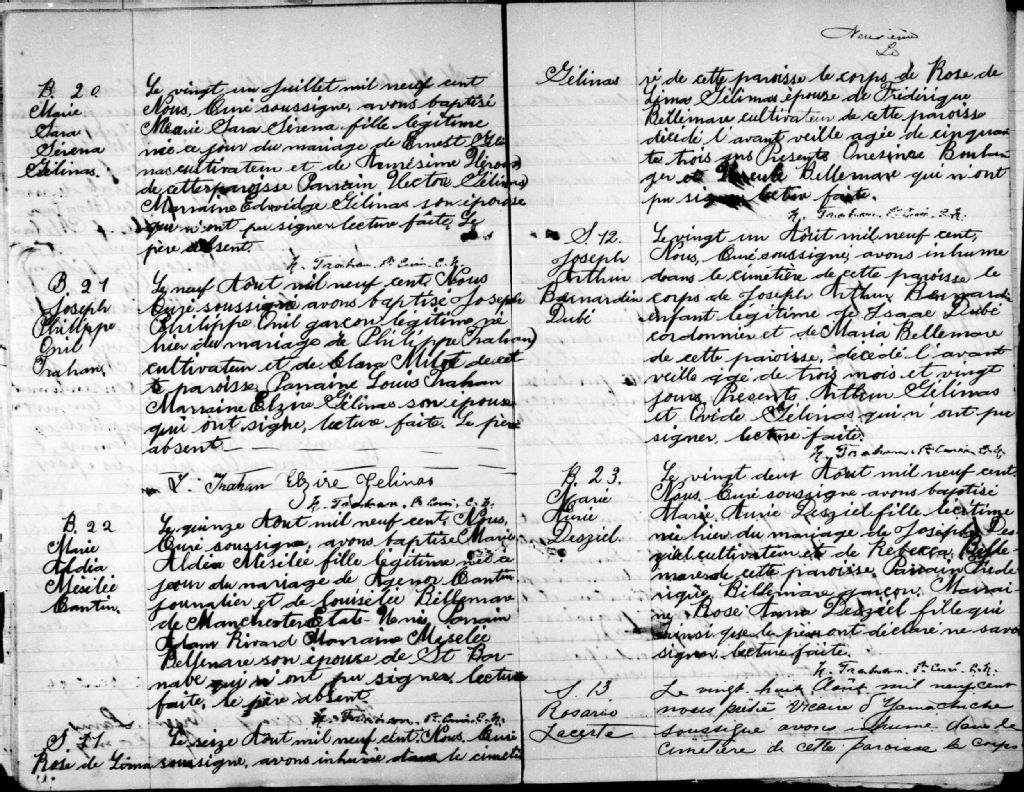 B. 20
Marie
Sara
Serena
Gélinas.
Le vingt un Juillet mil neuf cent
Nous, Curé soussigné, avons baptisé
Marie Sara Serena fille légitime
née ce jour du mariage de Ernest Géli
nas cultivateur et de
de cette paroisse Parrain Hector Gélinas
Marraine Edwidge Gélinas son épouse
qui n'ont pu signer lecture faite, Le
père absent.
H. Trahan. Ptre Curé. C. H.
B. 21
Joseph
Philippe
Onil
Trahan,
Le neuf Aout mil neuf cent. Nous
Curé soussigné avons baptisé Joseph
Philippe Onil garçon légitime né
hier du mariage de Philippe Trahan
cultivateur et de Clara Milot de cet
te paroisse, Parraine Louis Trahan
Marraine Elzire Gélinas son épouse
qui ont signé, lecture faite. Le père
absent
L. Trahan Elzire Gelinas
H. Trahan. Ptre Curé. C. H.
B. 22
Marie
Aldéa
Mésélée
Cantin.
Le quinze Aout mil neuf cent. Nous,
Curé soussigné, avons baptisé Marie
Aldéa Mésélée fille légitime née ce
jour du mariage de Agenor Cantin
journalier et de Louisélée Bellemare
de Manchester Etats-Unis, Parrain
Adam Rivard Marraine Meselée
Bellemare son épouse de St Bar-
nabé qui n'ont pu signer, lecture
faite, le père absent.
H. Trahan. Ptre Curé. C. H.
S. 11
Rose de Lima
Le seize Aout mil neuf cent. Nous, Curé
soussigné, avons inhumé dans le cimetiè
Neuvième
Gélinas
re de cette paroisse le corps de Rose de
Lima Gélinas épouse de Fréderique
Bellemare cultivateur de cette paroisse
décédé l'avant veille agée de cinquan
te trois ans Présents Onesime Boulan
ger et Bellemare qui n'ont
pu signer lecture faite.
H. Trahan. Ptre Curé. C. H.
S. 12.
Joseph
Arthur
Bernardin
Dubé
Le vingt un Aout mil neuf cent,
Nous, Curé soussigné, avons inhumé
dans le cimetière de cette paroisse le
corps de Joseph Arthur Bernardin
enfant légitime de Isaac Dubé
cordonnier et de Maria Bellemare
de cette paroisse, décédé l'avant
veille agé de trois mois et vingt
jours, Presents Arthur Gélinas
et Ovide Gélinas qui n'ont pu
signer, lecture faite.
H. Trahan. Ptre Curé. C. H.
B. 23.
Marie
Aurie
Desziel.
Le vingt deux Aout mil neuf cent
Nous, Curé soussigné avons baptisé
Marie Aurie Desziel fille légitime
née hier du mariage de Joseph Des
ziel cultivateur et de Rebecca Belle-
mare de cette paroisse. Parrain Fréde-
rique Bellemare garçon, Marrai
ne, Rose Anna Desziel fille qui
ainsi que le père ont déclaré ne savoir
signer, lecture faite.
H. Trahan. Ptre Curé. C. H.
S. 13
Rosario
Lacerte
Le vingt huit Août mil neuf cent
nous prêtre Vicaire d'Yamachiche
soussigné avons inhumé dans le
cimetière de cette paroisse le corps